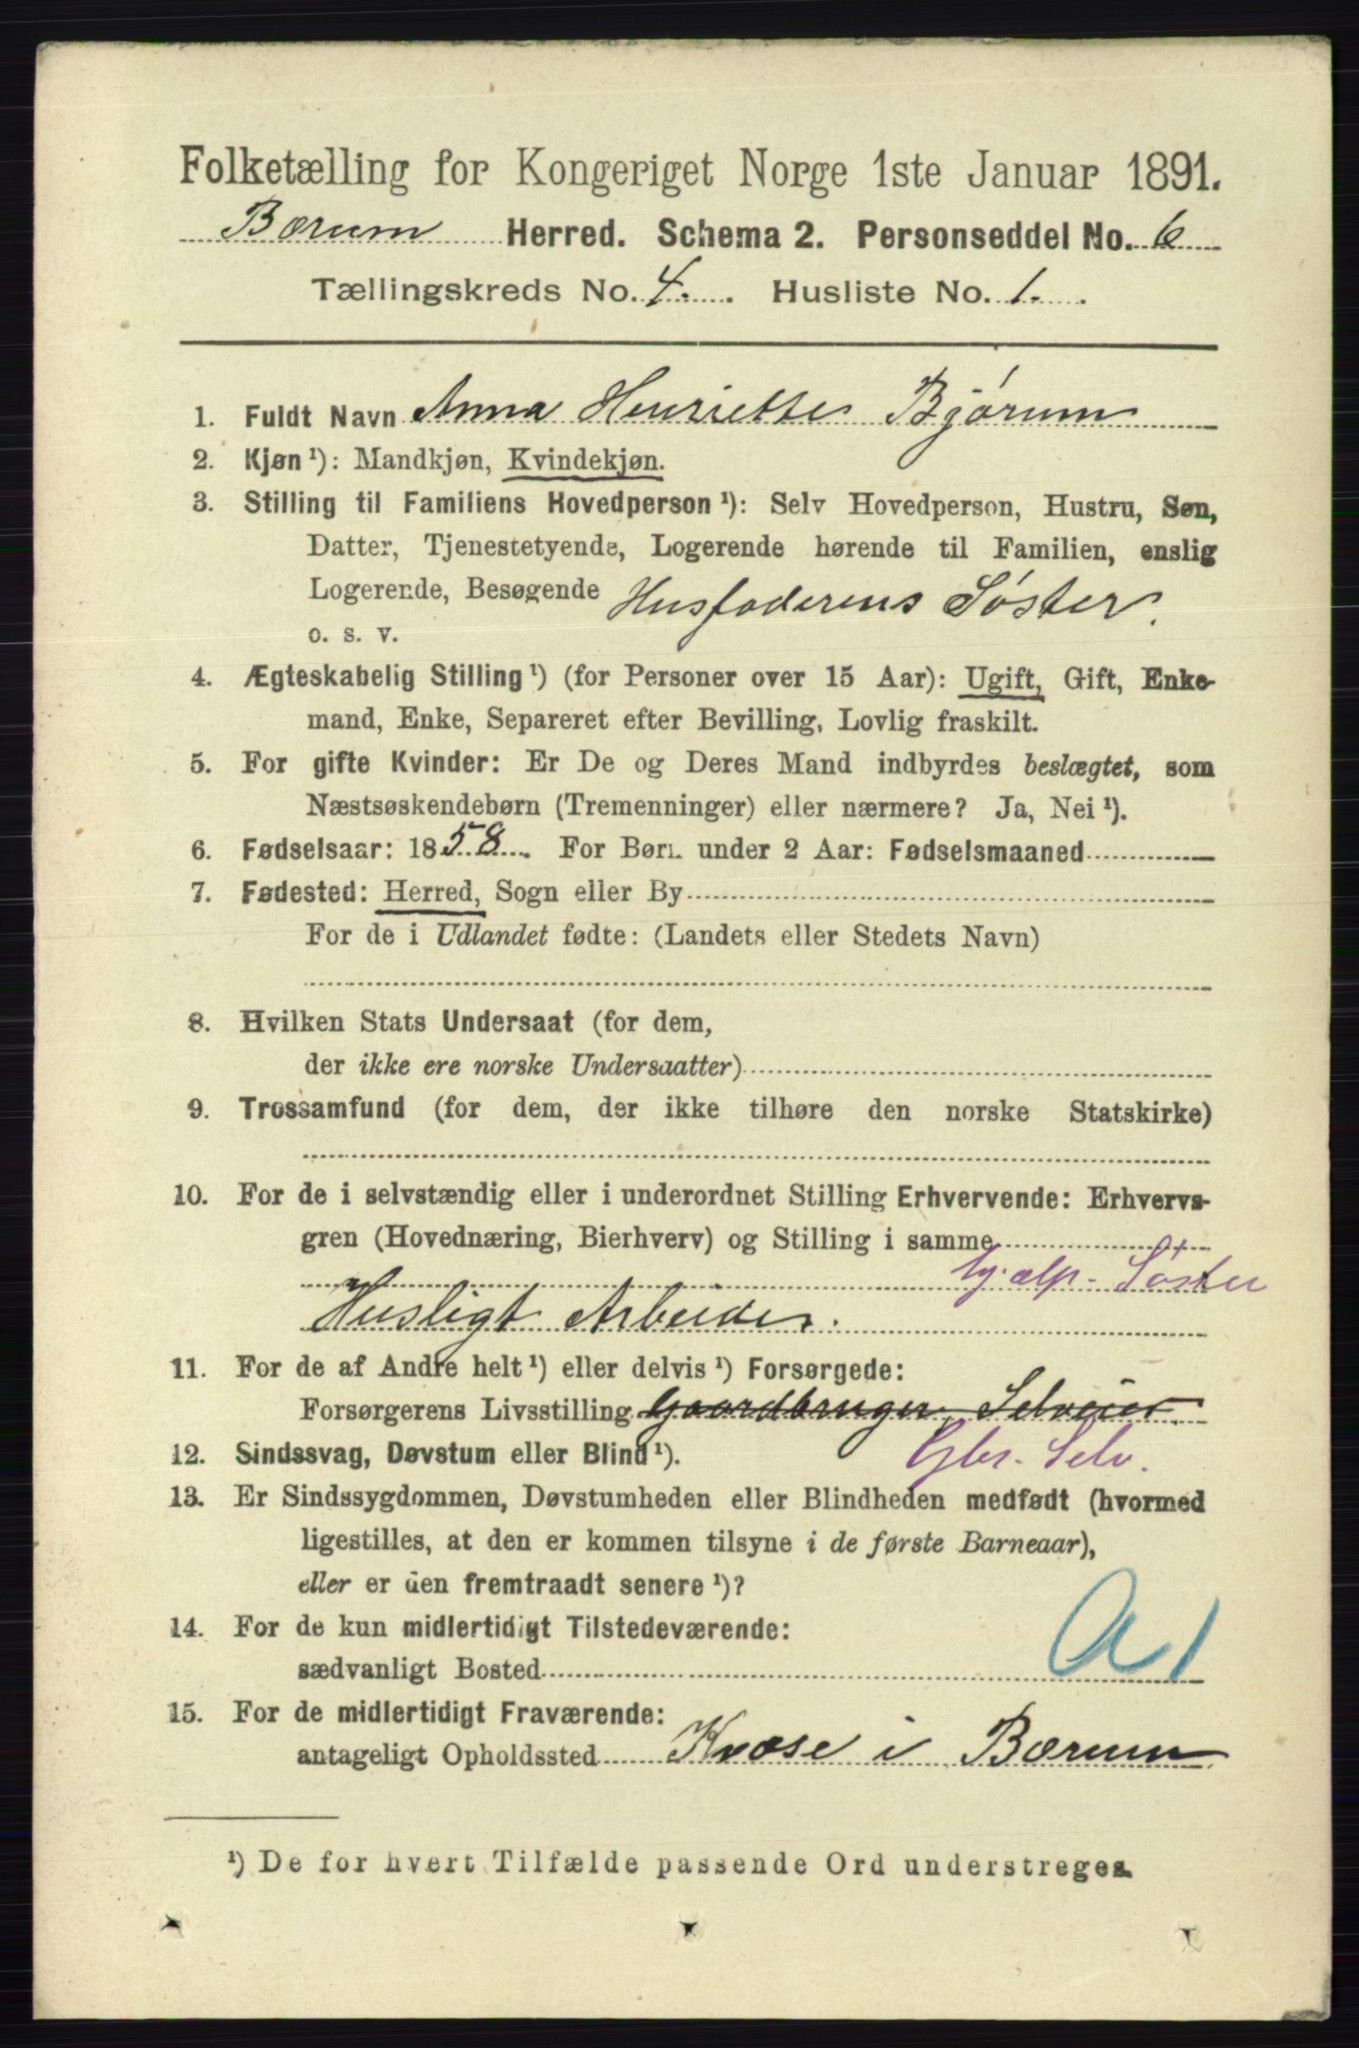 Folketælling for Kongeriget Norge 1ste Januar 1891.
Bærum Herred. Schema 2. Personseddel No. 6
Tællingskreds No. 4. Husliste No. 1.
1. Fuldt Navn Anna Henriette Bjørum
2. Kjøn ¹): Mandkjøn, Kvindekjøn.
3. Stilling til Familiens Hovedperson ¹): Selv Hovedperson, Hustru, Søn,
Datter, Tjenestetyende, Logerende hørende til Familien, enslig
Logerende, Besøgende Husfaderens Søster.
o. s. v.
4. Ægteskabelig Stilling ¹) (for Personer over 15 Aar): Ugift, Gift, Enke-
mand, Enke, Separeret efter Bevilling, Lovlig fraskilt.
5. For gifte Kvinder: Er De og Deres Mand indbyrdes beslægtet, som
Næstsøskendebørn (Tremenninger) eller nærmere? Ja, Nei ¹).
6. Fødselsaar: 1858. For Børn under 2 Aar: Fødselsmaaned
7. Fødested: Herred, Sogn eller By
For de i Udlandet fødte: (Landets eller Stedets Navn)
8. Hvilken Stats Undersaat (for dem,
der ikke ere norske Undersaatter)
9. Trossamfund (for dem, der ikke tilhøre den norske Statskirke)
10. For de i selvstændig eller i underordnet Stilling Erhvervende: Erhvervs-
gren (Hovednæring, Bierhverv) og Stilling i samme
hjælp. Søster
Husligt Arbeide.
11. For de af Andre helt ¹) eller delvis ¹) Forsørgede:
Forsørgerens Livsstilling Gaardbruger, Selveier.
12. Sindssvag, Døvstum eller Blind ¹). Gbr. Selv.
13. Er Sindssygdommen, Døvstumheden eller Blindheden medfødt (hvormed
ligestilles, at den er kommen tilsyne i de første Barneaar),
eller er den fremtraadt senere ¹)?
14. For de kun midlertidigt Tilstedeværende:
sædvanligt Bosted A1
15. For de midlertidigt Fraværende:
antageligt Opholdssted Kvæse i Bærum.
¹) De for hvert Tilfælde passende Ord understreges.